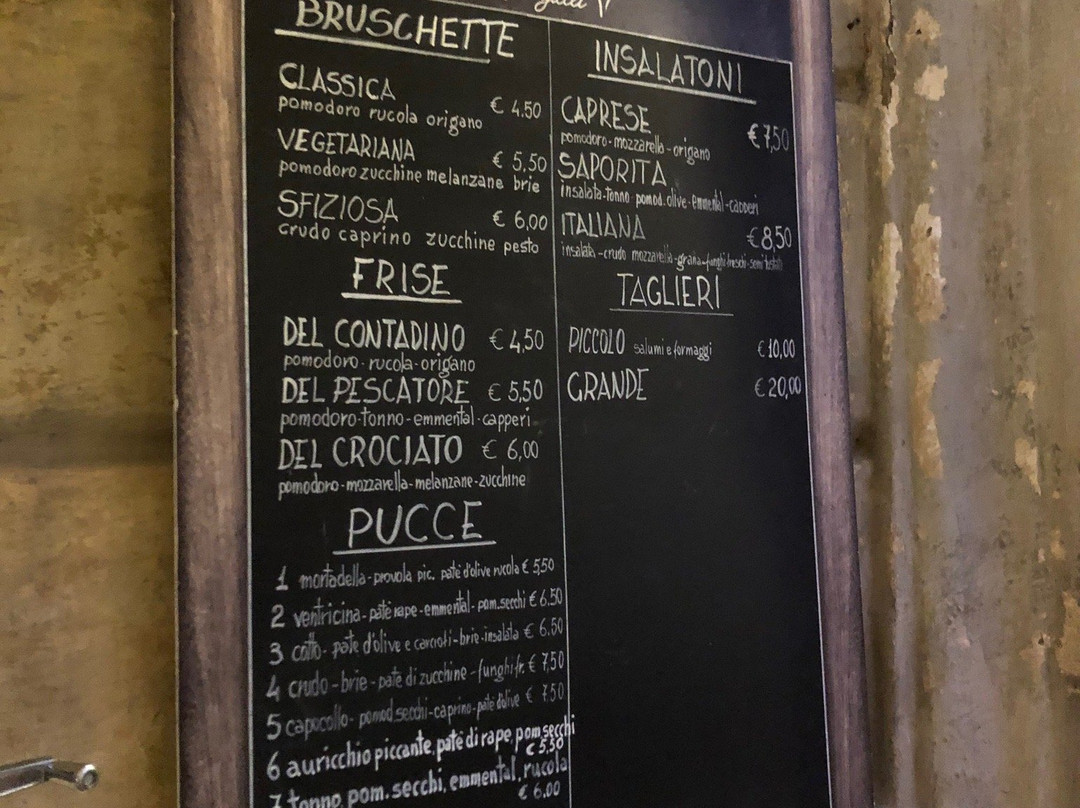 BRUSCHETTE
CLASSICA € 4.50
pomodoro rucola origano
VEGETARIANA € 5,50
pomodoro zucchine melanzane brie
SFIZIOSA € 6,00
crudo caprino zucchine pesto
FRISE
DEL CONTADINO € 4,50
pomodoro-rucola-origano
DEL PESCATORE € 5,50
pomodoro-tonno-emmental-capperi
DEL CROCIATO € 6,00
pomodoro-mozzarella-melanzane-zucchine
PUCCE
1 mortadella-provola pic. patè d'olive rucola € 5,50
2 ventricina-patè rape-emmental-pom.secchi € 6.50
3 cotto-patè d'olive e carciofi-brie-insalata € 6.50
4 crudo-brie-patè di zucchine-funghi fr. € 7,50
5 capocollo-pomod.secchi-caprino-patè d'olive € 7.50
6 auricchio piccante, patè di rape, pom secchi
€ 5,50
7 tonno, pom. secchi, emmental, rucola
€ 6.00
INSALATONI
CAPRESE € 7,50
pomodoro-mozzarella-origano
SAPORITA
insalata-tonno pomod.olive-emmental-capperi
ITALIANA € 8,50
insalata-crudo mozzarella-grana-funghi freschi-semi
TAGLIERI
PICCOLO salumi e formaggi € 10,00
GRANDE € 20,00